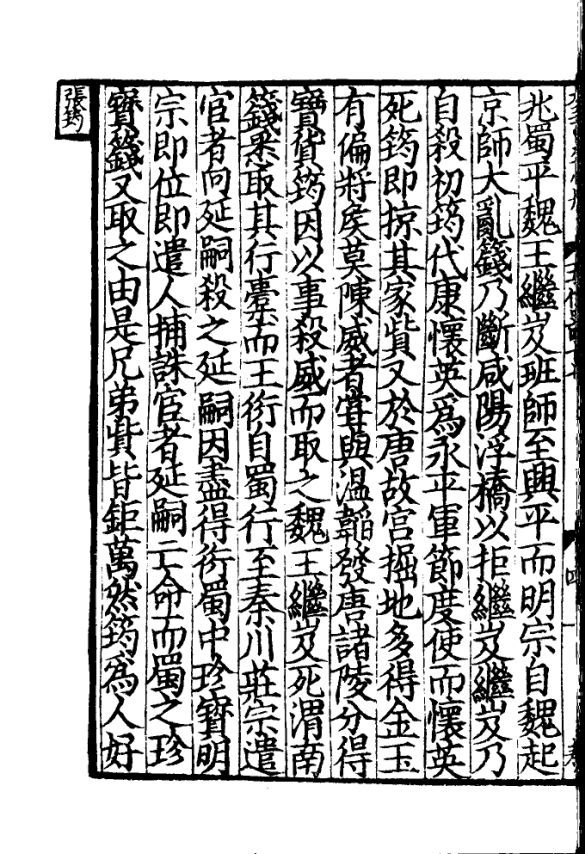 兆蜀平魏王繼岌班師至興平而明宗自魏起
京師大亂籛乃斷咸陽浮橋以拒繼岌繼岌乃
自殺初筠代康懷英爲永平軍節度使而懷英
死筠即掠其家貲又於唐故宫掘地多得金玉
有偏將矦莫陳威者甞與温韜發唐諸陵分得
寳貨筠因以事殺威而取之魏王繼岌死渭南
籛悉取其行橐而王衍自蜀行至秦川莊宗遣
官者向延嗣殺之延嗣因盡得衍蜀中珍寳明
宗即位即遣人捕誅官者延嗣亡命而蜀之珍
寳籛又取之由是兄弟貲皆鉅萬然筠爲人好
張筠